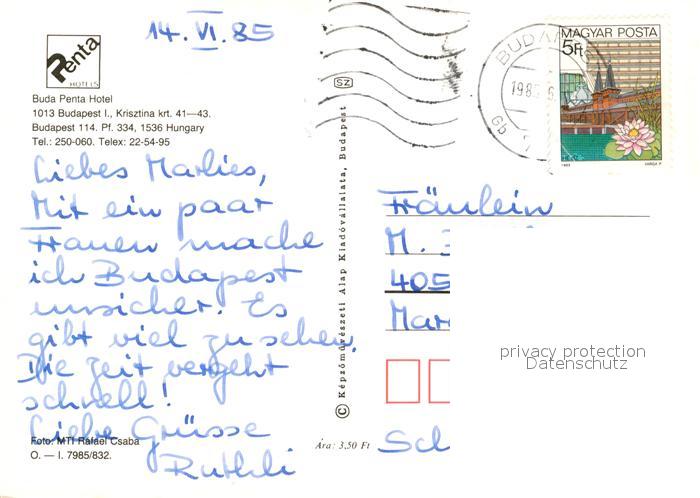 14. VI. 85
Penta
HOTELS
Buda Penta Hotel
1013 Budapest I., Krisztina krt. 41—43.
Budapest 114. Pf. 334, 1536 Hungary
Tel.: 250-060. Telex: 22-54-95
Liebes Marlies,
Mit ein paar
Frauen mache
ich Budapest
unsicher. Es
gibt viel zu sehen.
Die Zeit vergeht
schnell!
Liebe Grüsse
Ruthli
Foto: MTI Rafael Csaba
O. — I. 7985/832.
SZ
© Képzőművészeti Alap Kiadóvállalata, Budapest
Ára: 3,50 Ft
BUDAPEST
1985
MAGYAR POSTA
5Ft
Fräulein
M.
405
Mar
Sch
privacy protection
Datenschutz